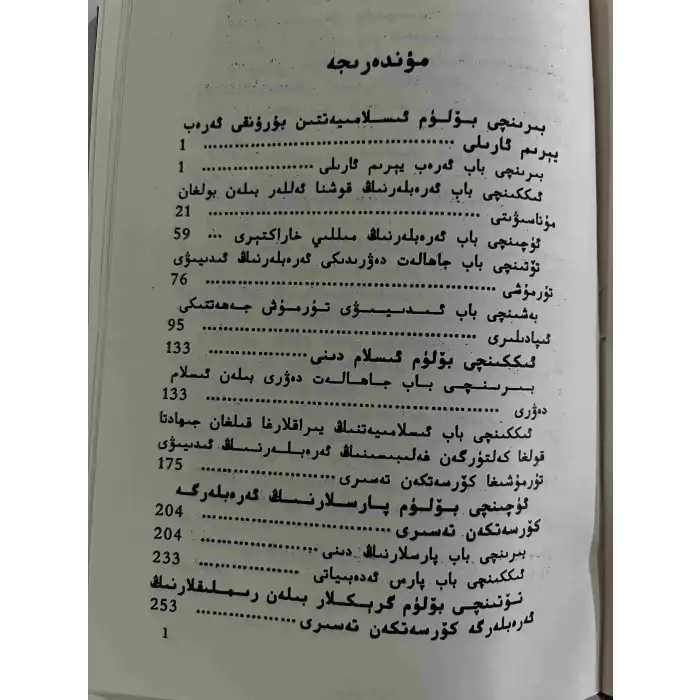 مۇندەرىجە
بىرىنچى بۆلۈم ئىسلامىيەتتىن بۇرۇنقى ئەرەب
يېرىم ئارىلى ........................................ 1
بىرىنچى باب ئەرەب يېرىم ئارىلى .................... 1
ئىككىنچى باب ئەرەبلەرنىڭ قوشنا ئەللەر بىلەن بولغان
مۇناسىۋىتى ........................................ 21
ئۈچىنچى باب ئەرەبلەرنىڭ مىللىي خاراكتېرى ... 59
تۆتىنچى باب جاھالەت دەۋرىدىكى ئەرەبلەرنىڭ ئىدىيىۋى
تۇرمۇشى ........................................ 76
بەشىنچى باب ئىدىيىۋى تۇرمۇش جەھەتتىكى
ئىپادىلىرى ........................................ 95
ئىككىنچى بۆلۈم ئىسلام دىنى .................... 133
بىرىنچى باب جاھالەت دەۋرى بىلەن ئىسلام
دەۋرى ........................................ 133
ئىككىنچى باب ئىسلامىيەتنىڭ يىراقلارغا قىلغان جىھادتا
قولغا كەلتۈرگەن غەلىبىسىنىڭ ئەرەبلەرنىڭ ئىدىيىۋى
تۇرمۇشىغا كۆرسەتكەن تەسىرى .................... 175
ئۈچىنچى بۆلۈم پارسلارنىڭ ئەرەبلەرگە
كۆرسەتكەن تەسىرى .............................. 204
بىرىنچى باب پارسلارنىڭ دىنى .................... 204
ئىككىنچى باب پارس ئەدەبىياتى .................... 233
تۆتىنچى بۆلۈم گرېكلار بىلەن رىملىقلارنىڭ
ئەرەبلەرگە كۆرسەتكەن تەسىرى .................... 253
1